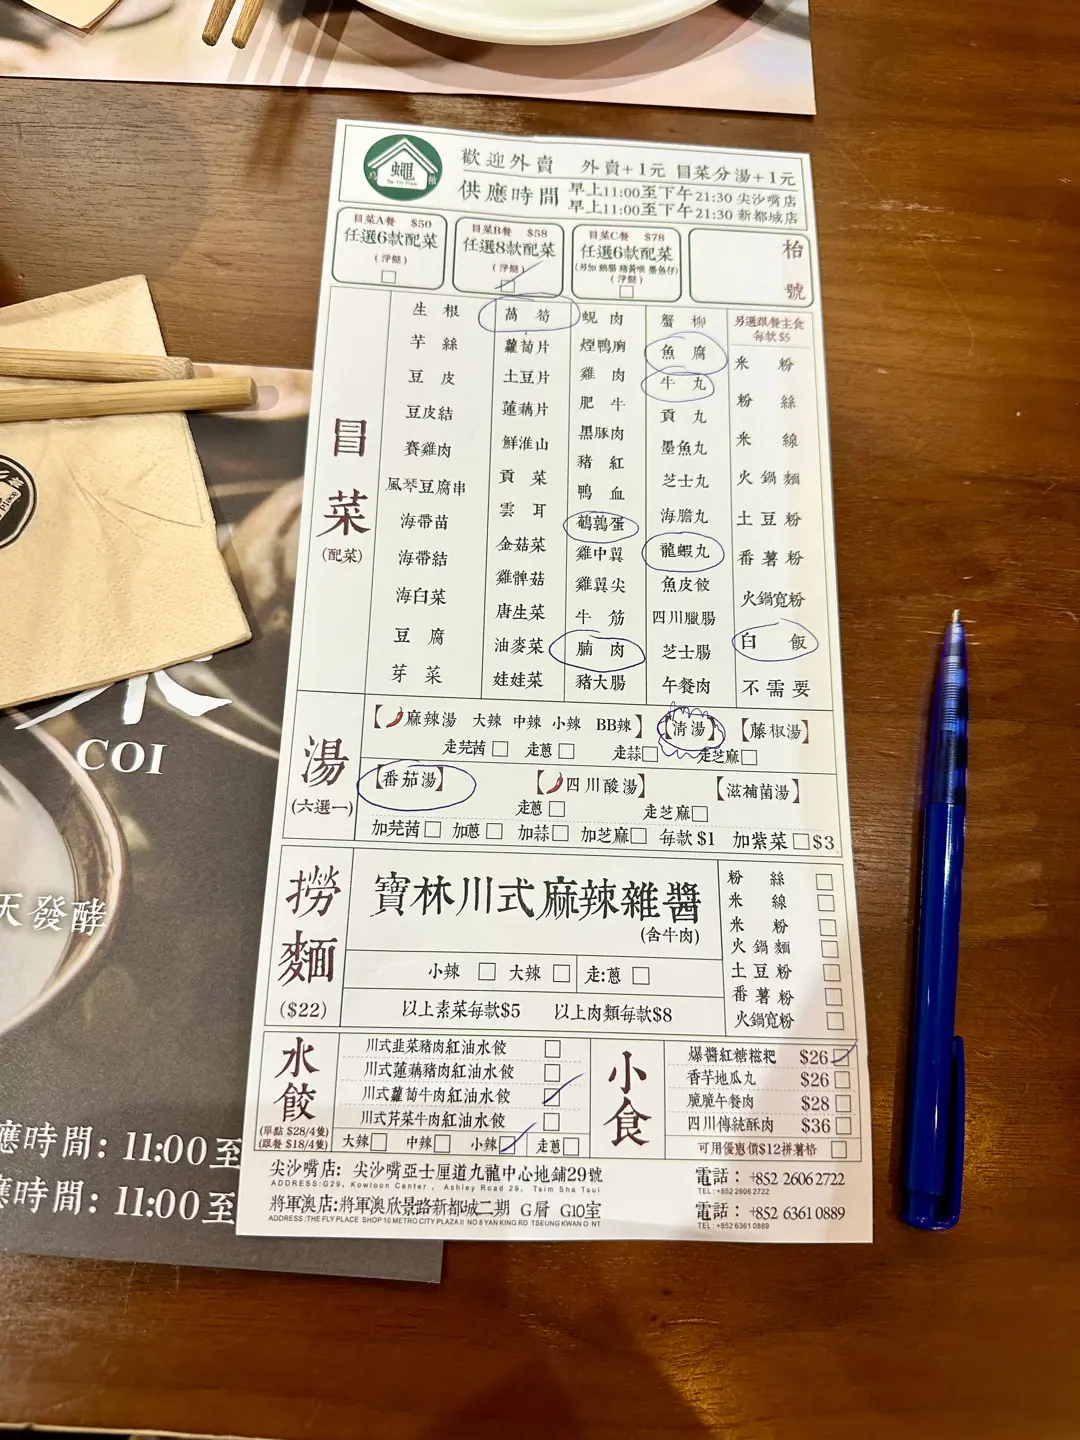 蠅
The Fly Place
館
歡迎外賣 外賣+1元 冒菜分湯+1元
供應時間 早上11:00至下午21:30 尖沙嘴店
早上11:00至下午21:30 新都城店
冒菜A餐 $50
任選6款配菜
(淨餸)
冒菜B餐 $58
任選8款配菜
(淨餸)
冒菜C餐 $78
任選6款配菜
(另加 鵝腸 豬黃喉 墨魚仔)
(淨餸)
枱
號
冒菜
(配菜)
生根
芋絲
豆皮
豆皮結
賽雞肉
風琴豆腐串
海帶苗
海帶結
海白菜
豆腐
芽菜
萵筍
蘿蔔片
土豆片
蓮藕片
鮮淮山
貢菜
雲耳
金菇菜
雞髀菇
唐生菜
油麥菜
娃娃菜
蜆肉
煙鴨胸
雞肉
肥牛
黑豚肉
豬紅
鴨血
鵪鶉蛋
雞中翼
雞翼尖
牛筋
腩肉
豬大腸
蟹柳
魚腐
牛丸
貢丸
墨魚丸
芝士丸
海膽丸
龍蝦丸
魚皮餃
四川臘腸
芝士腸
午餐肉
另選跟餐主食
每款$5
米粉
粉絲
米線
火鍋麵
土豆粉
番薯粉
火鍋寬粉
白飯
不需要
湯
(六選一)
【麻辣湯 大辣 中辣 小辣 BB辣】 【清湯】 【藤椒湯】
走芫茜 走蔥 走蒜 走芝麻
【番茄湯】 【四川酸湯】 【滋補菌湯】
走蔥 走芝麻
加芫茜 加蔥 加蒜 加芝麻 每款$1 加紫菜 $3
撈麵
($22)
寶林川式麻辣雜醬
(含牛肉)
小辣 大辣 走:蔥
以上素菜每款$5 以上肉類每款$8
粉絲
米線
米粉
火鍋麵
土豆粉
番薯粉
火鍋寬粉
水餃
(單點 $28/4隻)
(跟餐 $18/4隻)
川式韭菜豬肉紅油水餃
川式蓮藕豬肉紅油水餃
川式蘿蔔牛肉紅油水餃
川式芹菜牛肉紅油水餃
大辣 中辣 小辣 走蔥
小食
爆醬紅糖糍粑 $26
香芋地瓜丸 $26
脆脆午餐肉 $28
四川傳統酥肉 $36
可用優惠價$12拼薯格
尖沙嘴店: 尖沙嘴亞士厘道九龍中心地鋪29號
ADDRESS:G29, Kowloon Center, Ashley Road 29, Tsim Sha Tsui
電話: +852 2606 2722
TEL: +852 2606 2722
將軍澳店:將軍澳欣景路新都城二期 G層 G10室
ADDRESS:THE FLY PLACE SHOP 10 METRO CITY PLAZA II NO 8 YAN KING RD TSEUNG KWAN O NT
電話: +852 6361 0889
TEL: +852 6361 0889
Place
COI
天發酵
應時間: 11:00至
應時間: 11:00至